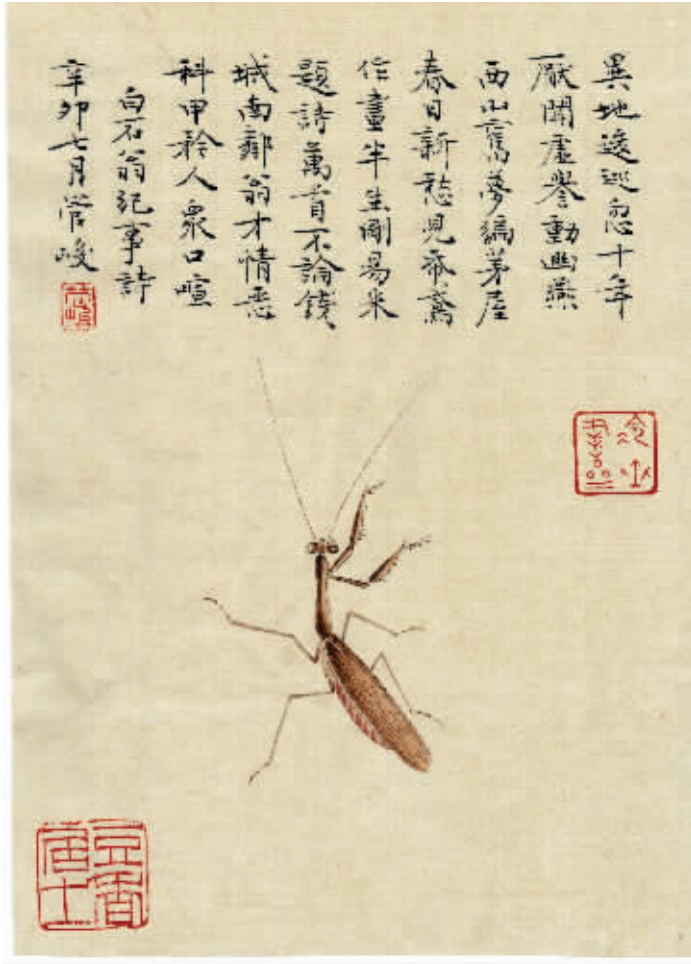 異地逡巡忽十年
厭聞虛譽動幽燕
西山舊夢編茅屋
春日新愁見帋鳶
作畫半生剛易米
題詩萬首不論錢
城南鄰翁才情惡
科甲矜人衆口喧
白石翁紀事詩
辛卯七月管峻
豆香居士